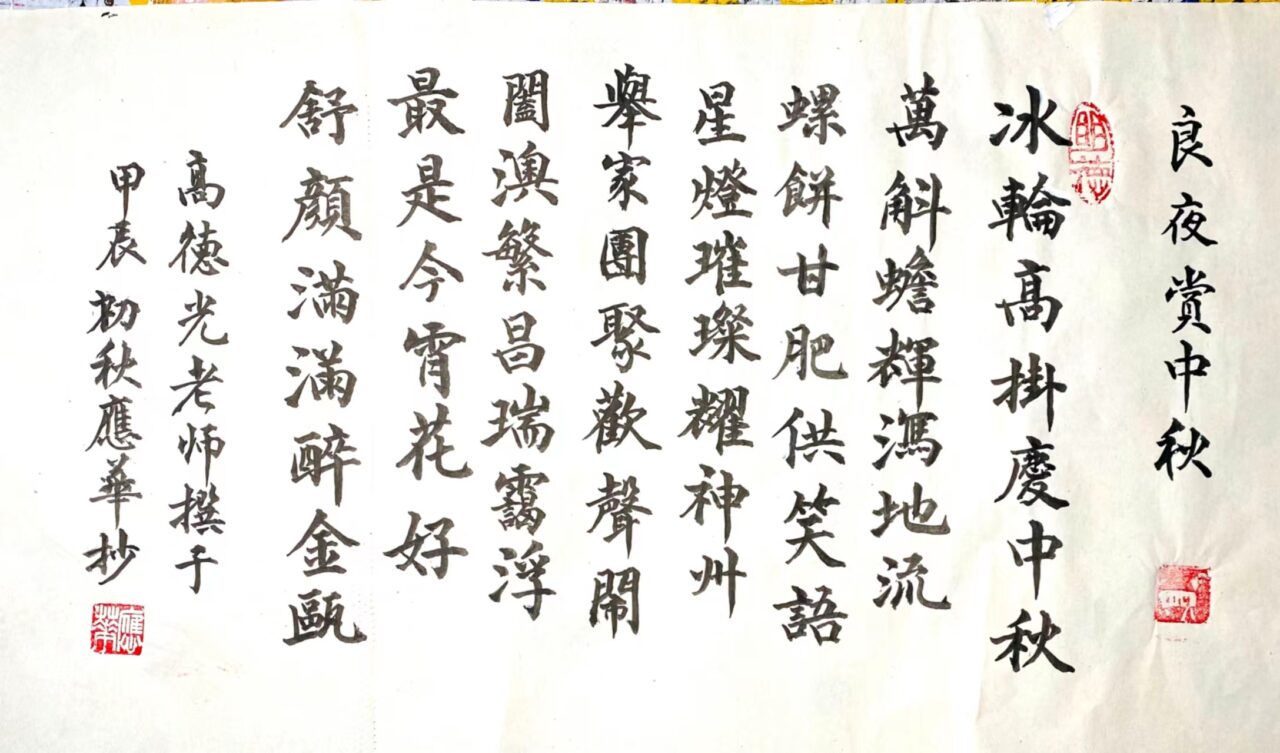 良夜賞中秋
明德
冰輪高掛慶中秋
萬斛蟾輝瀉地流
螺餅甘肥供笑語
星燈璀璨耀神州
舉家團聚歡聲鬧
闔澳繁昌瑞靄浮
最是今宵花好
舒顏滿滿醉金甌
高德光老师撰于
甲辰初秋應華抄
應華